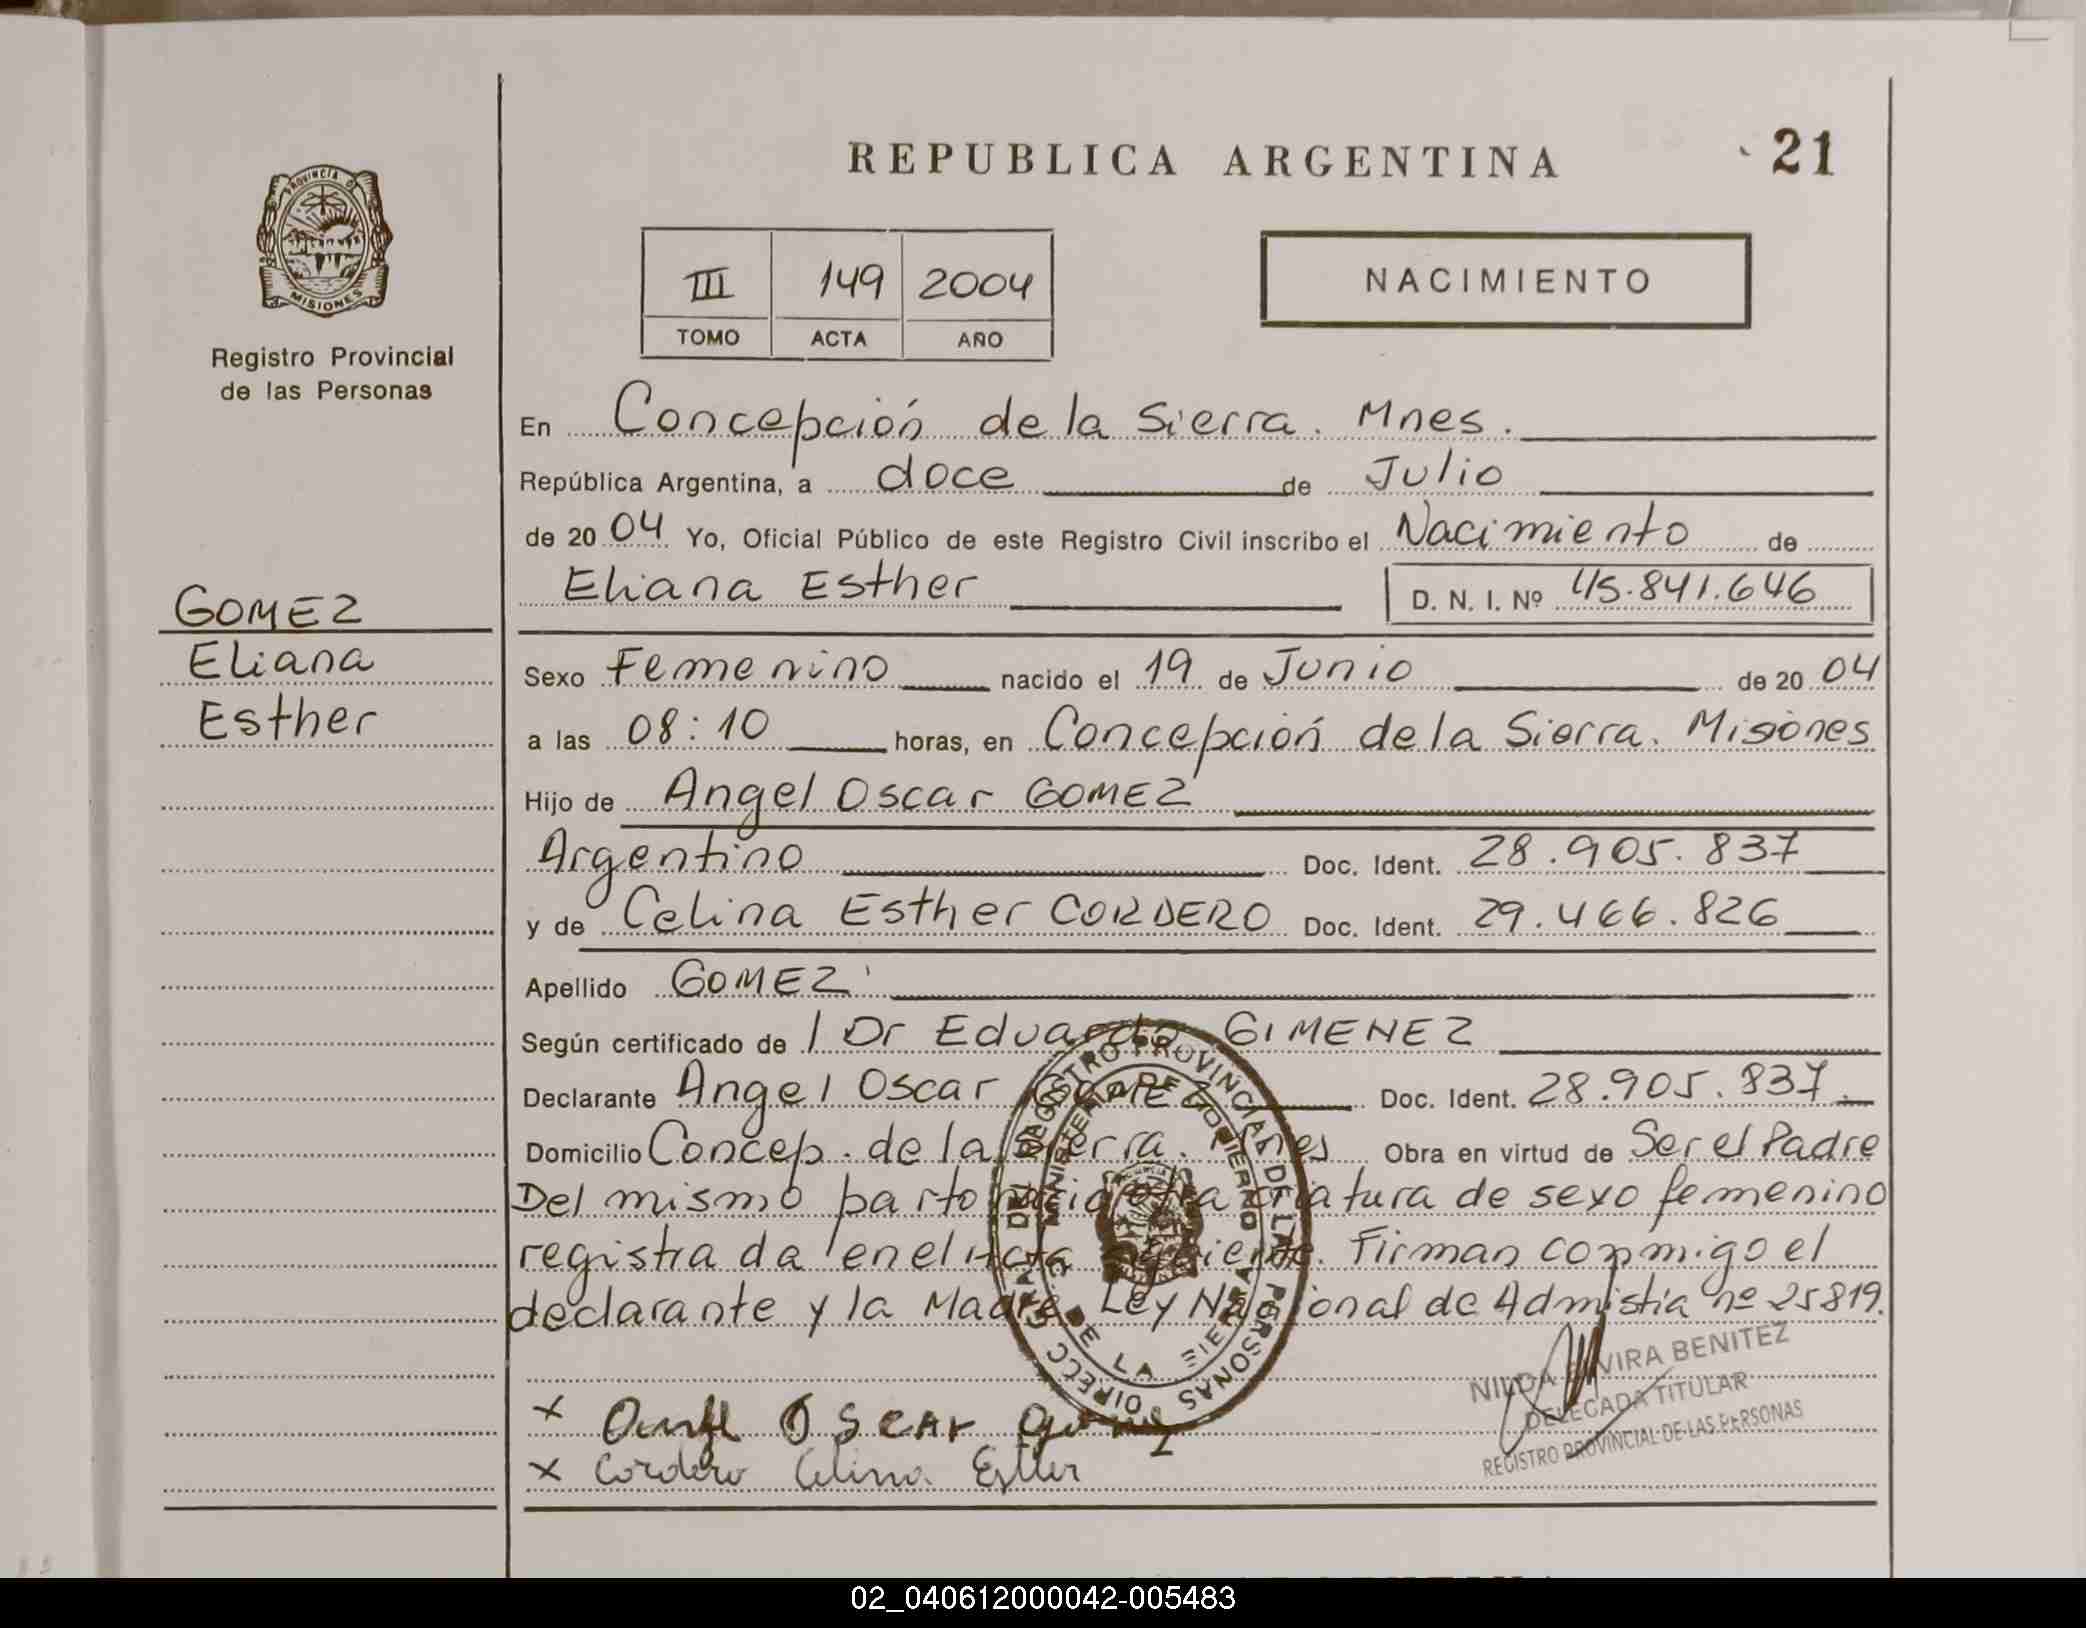 REPUBLICA ARGENTINA
21
PROVINCIA DE
MISIONES
Registro Provincial
de las Personas
III 149 2004
TOMO ACTA AÑO
NACIMIENTO
En Concepción de la Sierra. Mnes.
República Argentina, a doce de Julio
de 2004 Yo, Oficial Público de este Registro Civil inscribo el Nacimiento de
Eliana Esther D. N. I. Nº 45.841.646
GOMEZ
Eliana
Esther
Sexo Femenino nacido el 19 de Junio de 2004
a las 08:10 horas, en Concepción de la Sierra. Misiones
Hijo de Angel Oscar GOMEZ
Argentino Doc. Ident. 28.905.837
y de Celina Esther CORDERO Doc. Ident. 29.466.826
Apellido GOMEZ
Según certificado de l Dr Eduardo GIMENEZ
Declarante Angel Oscar GOMEZ Doc. Ident. 28.905.837
Domicilio Concep. de la Sierra. Mnes Obra en virtud de Ser el Padre
Del mismo parto nació otra criatura de sexo femenino
registrada en el Acta siguiente. Firman conmigo el
declarante y la Madre. Ley Nacional de Admistía nº 25819.
DIRECC GRAL DEL REGISTRO PROVINCIAL DE LAS PERSONAS
MINISTERIO DE GOBIERNO
DE LA
NILDA ELVIRA BENITEZ
DELEGADA TITULAR
REGISTRO PROVINCIAL DE LAS PERSONAS
x Oscar
x Cordero Celina Esther
02_040612000042-005483